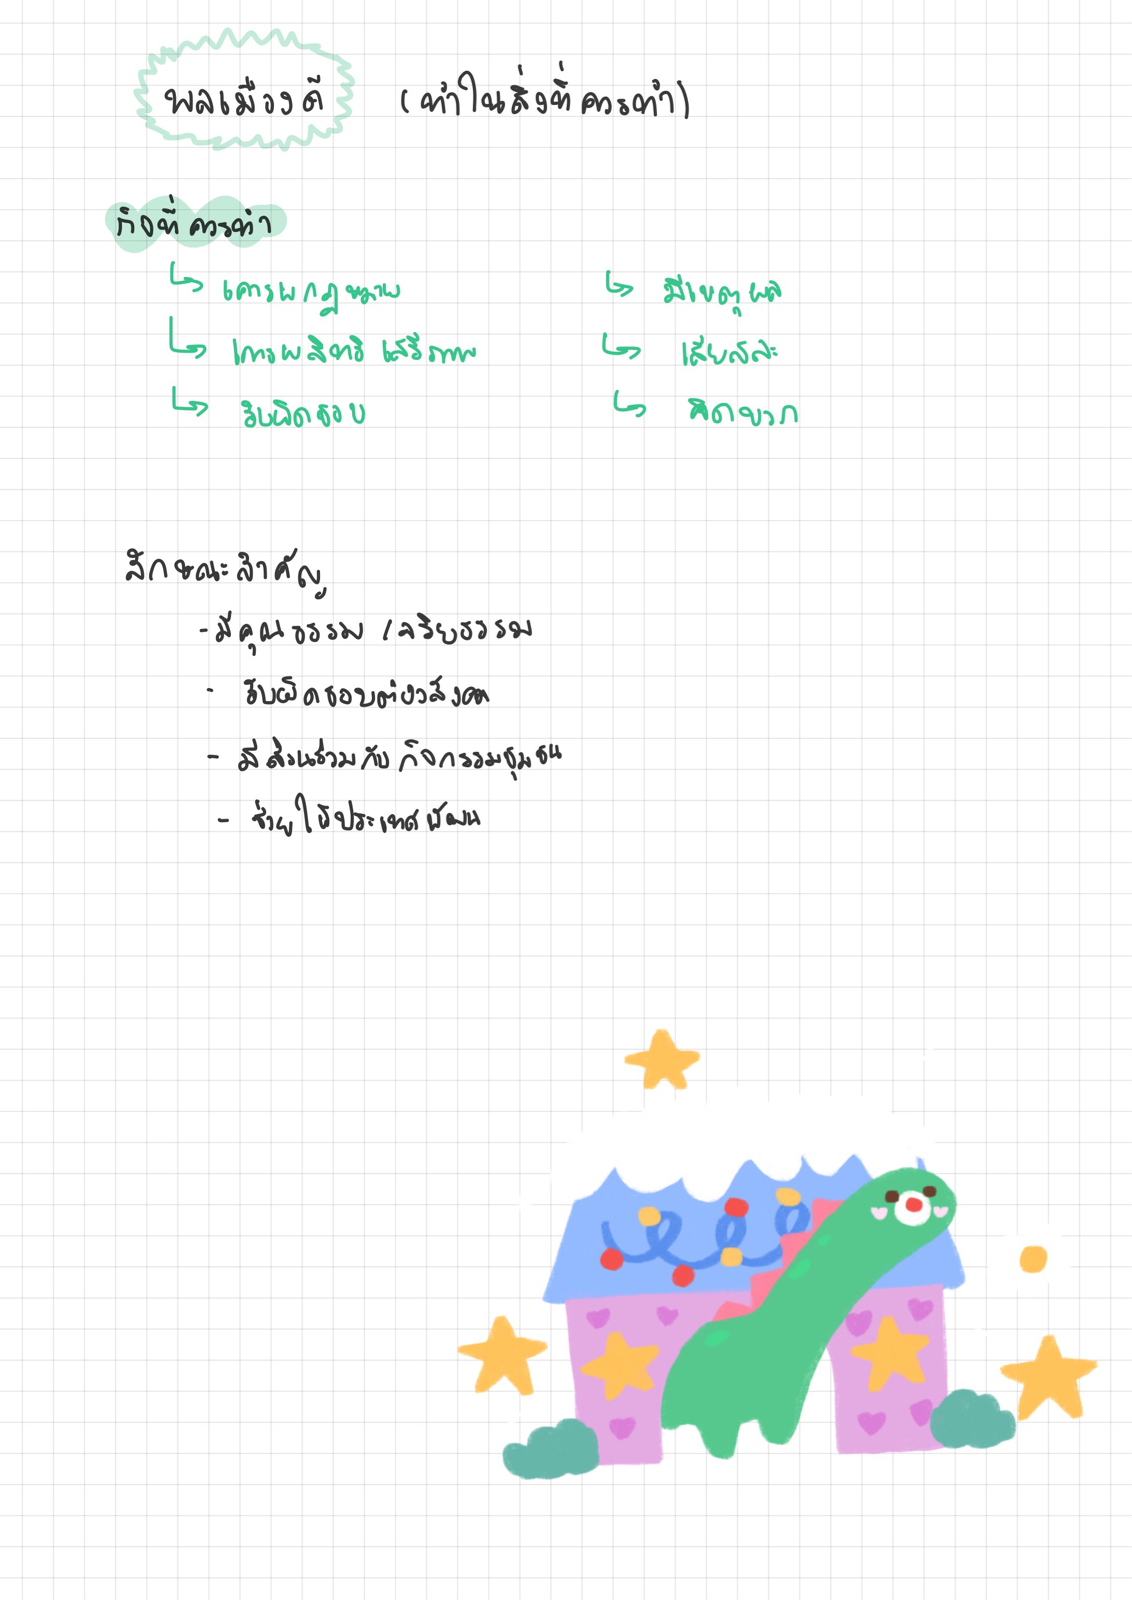 พลเมืองดี (ทำในสิ่งที่ควรทำ)
กิจที่ควรทำ
↳ เคารพกฎหมาย ↳ มีเหตุผล
↳ เคารพสิทธิ เสรีภาพ ↳ เสียสละ
↳ รับผิดชอบ ↳ จิตบวก
ลักษณะสำคัญ
- มีคุณธรรม / จริยธรรม
- รับผิดชอบต่อสังคม
- มีส่วนร่วมกับ กิจกรรมชุมชน
- ช่วยให้ประเทศพัฒนา